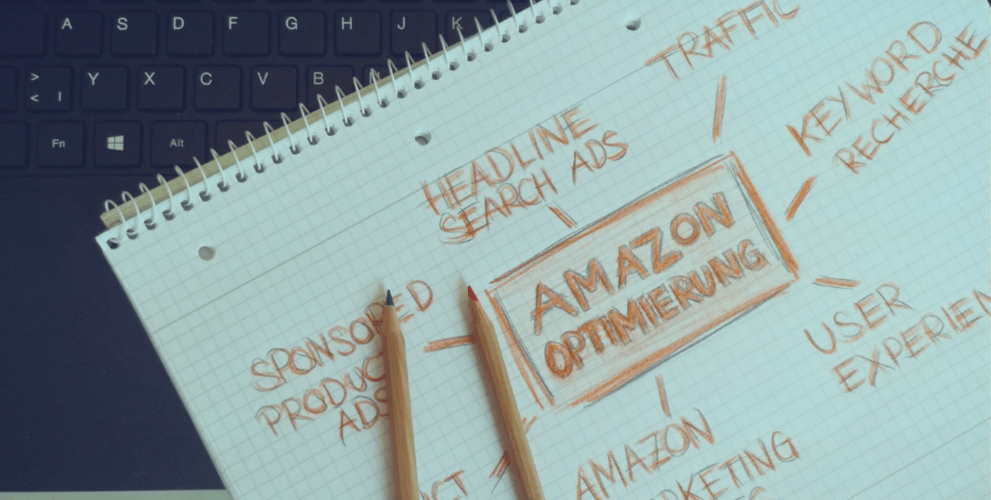 A S D F G H J K
> Y X C V B
< |
Fn Alt
TRAFFIC
KEYWORD
RECHERCHE
HEADLINE
SEARCH ADS
AMAZON
OPTIMIERUNG
SPONSORED
PRODUCT
ADS
USER
EXPERIEN
AMAZON
RKETING
CT